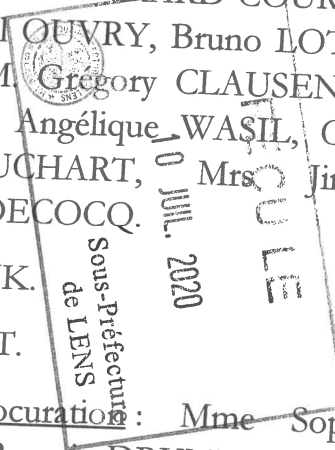 OUVRY, Bruno LOT
M. Grégory CLAUSEN
Angélique WASIL,
UCHART, Mrs Jin
DECOCQ.
K.
T.
ocuration : Mme Sop
REÇU LE
10 JUIL. 2020
Sous-Préfecture
de LENS